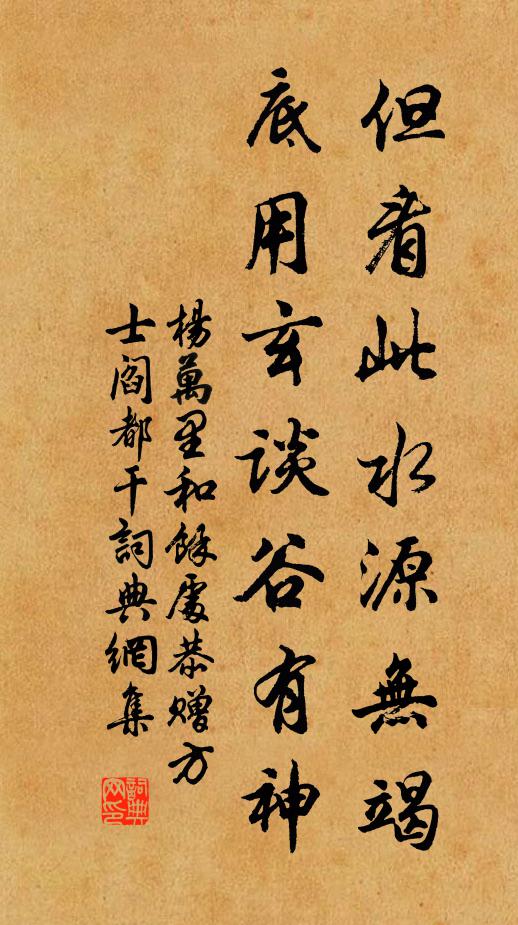 但看此水源無竭
底用玄談谷有神
楊萬里和餘處恭贈方
士閻都干詞典網集
詞典
网印